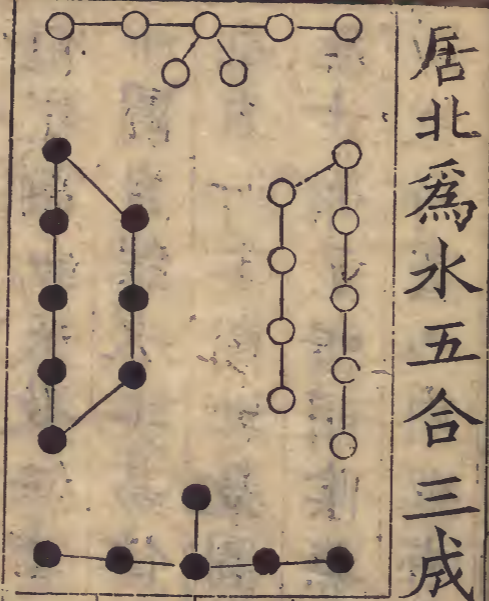 居北爲水五合三成